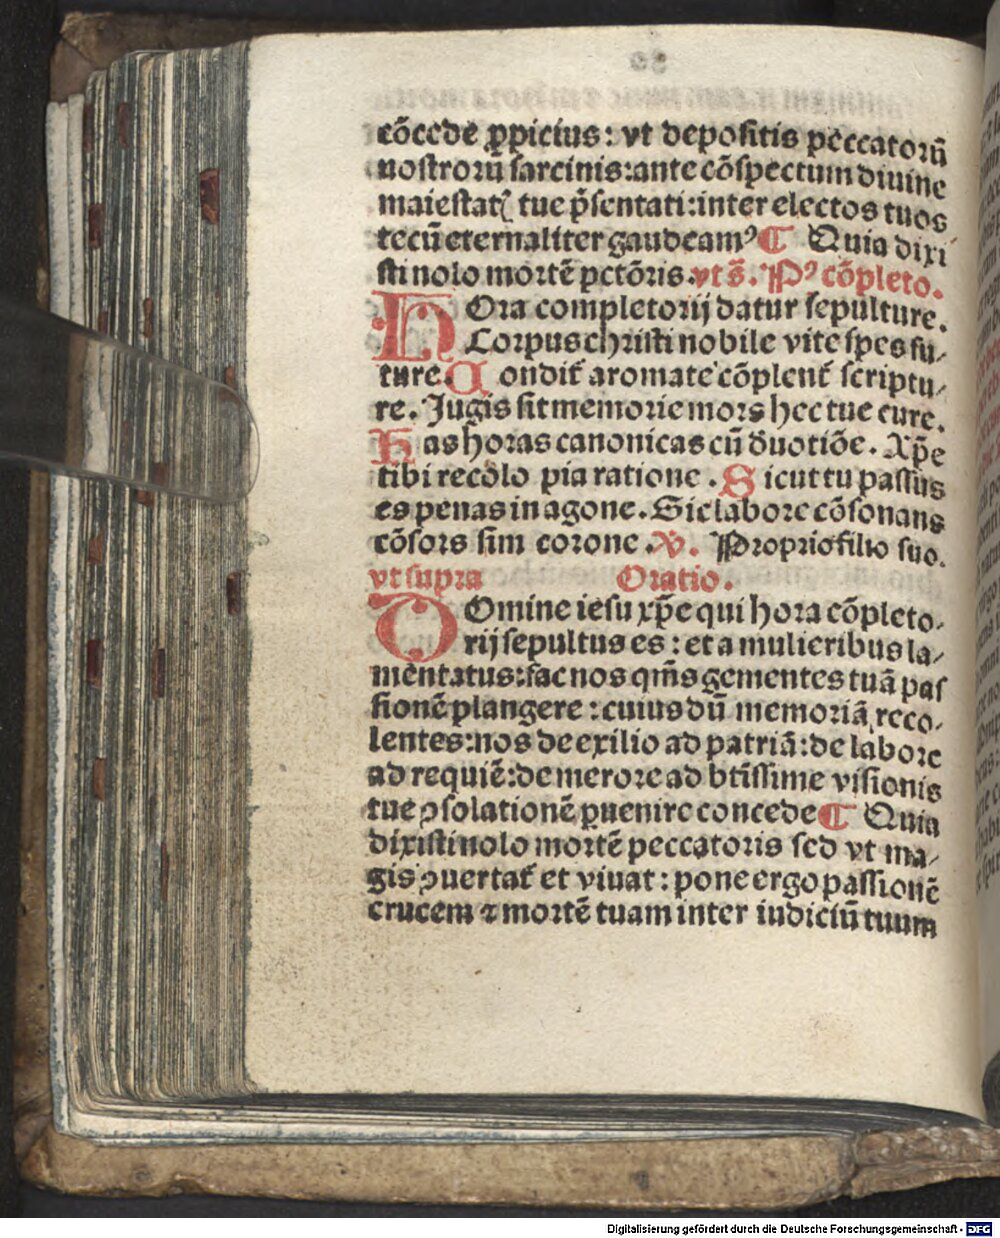 cõcede ꝓpicius: vt depositis peccatorũ
nostrorũ sarcinis:ante cõspectum diuine
maiestatꝭ tue p̃sentati:inter electos tuos
tecũ eternaliter gaudeamꝰ ¶ Quia dixi
sti nolo mortẽ pctõris. vt s̃. Pꝰ cõpleto.
HOra completorij datur sepulture.
Corpus christi nobile vite spes fu⸗
ture. Condit᷑ aromate cõplent᷑ scriptu⸗
re. Jugis sit memorie mors hec tue cure.
Has horas canonicas cũ d̾uotiõe. Xp̃e
tibi recolo pia ratione. Sicut tu passus
es penas in agone. Sic labore cõsonans
cõsors sim corone. ℣. Proprio filio suo.
vt supra Oratio.
DOmine iesu xp̃e qui hora cõpleto⸗
rij sepultus es: et a mulieribus la⸗
mentatus:fac nos qm̃s gementes tuã pas
sionẽ plangere: cuius dũ memoriã reco⸗
lentes:nos de exilio ad patriã:de labore
ad requiẽ:de merore ad btĩssime visionis
tue ꝯsolationẽ ꝑuenire concede ¶ Quia
dixisti nolo mortẽ peccatoris sed vt ma⸗
gis ꝯuertat᷑ et viuat: pone ergo passionẽ
crucem ⁊ mortẽ tuam inter iudiciũ tuum
Digitalisierung gefördert durch die Deutsche Forschungsgemeinschaft - DFG